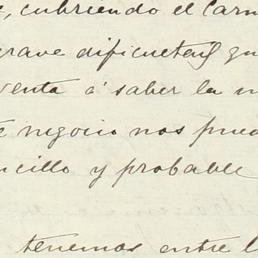 , cubriendo el Carn
grave dificultad qu
venta á saber la m
te negocio nos pued
ncillo y probable
tenemos entre l